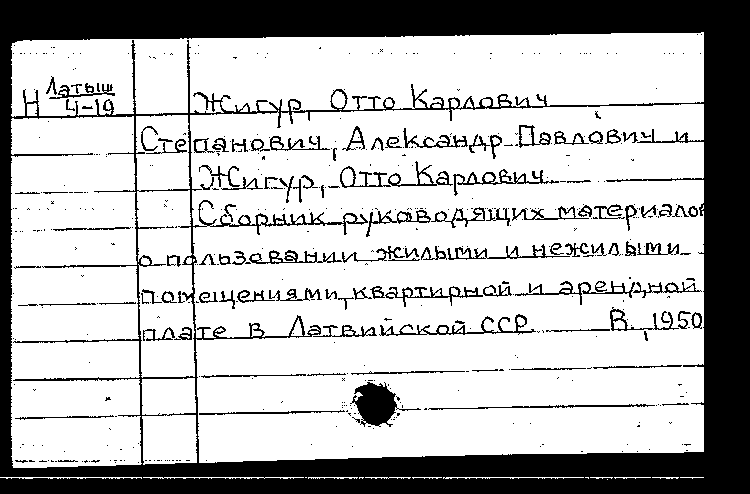 Н Латыш
4-19
Жигур, Отто Карлович
Степанович, Александр Павлович и
Жигур, Отто Карлович
Сборник руководящих материалов
о пользовании жилыми и нежилыми
помещениями, квартирной и арендной
плате в Латвийской ССР. В, 1950